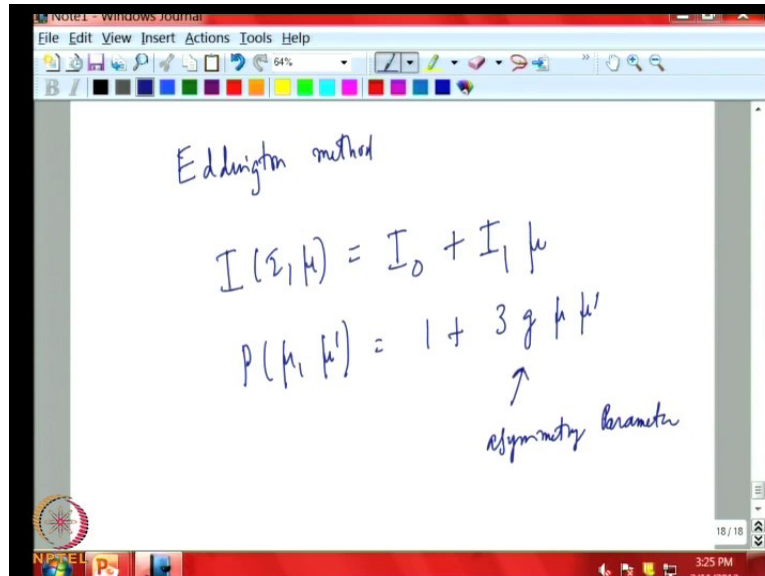 Note1 - Windows Journal
File Edit View Insert Actions Tools Help
64%
B I
Eddington method
I(τ, μ) = I₀ + I₁ μ
P(μ, μ') = 1 + 3 g μ μ'
↑
asymmetry Parameter
18 / 18
NPTEL
3:25 PM